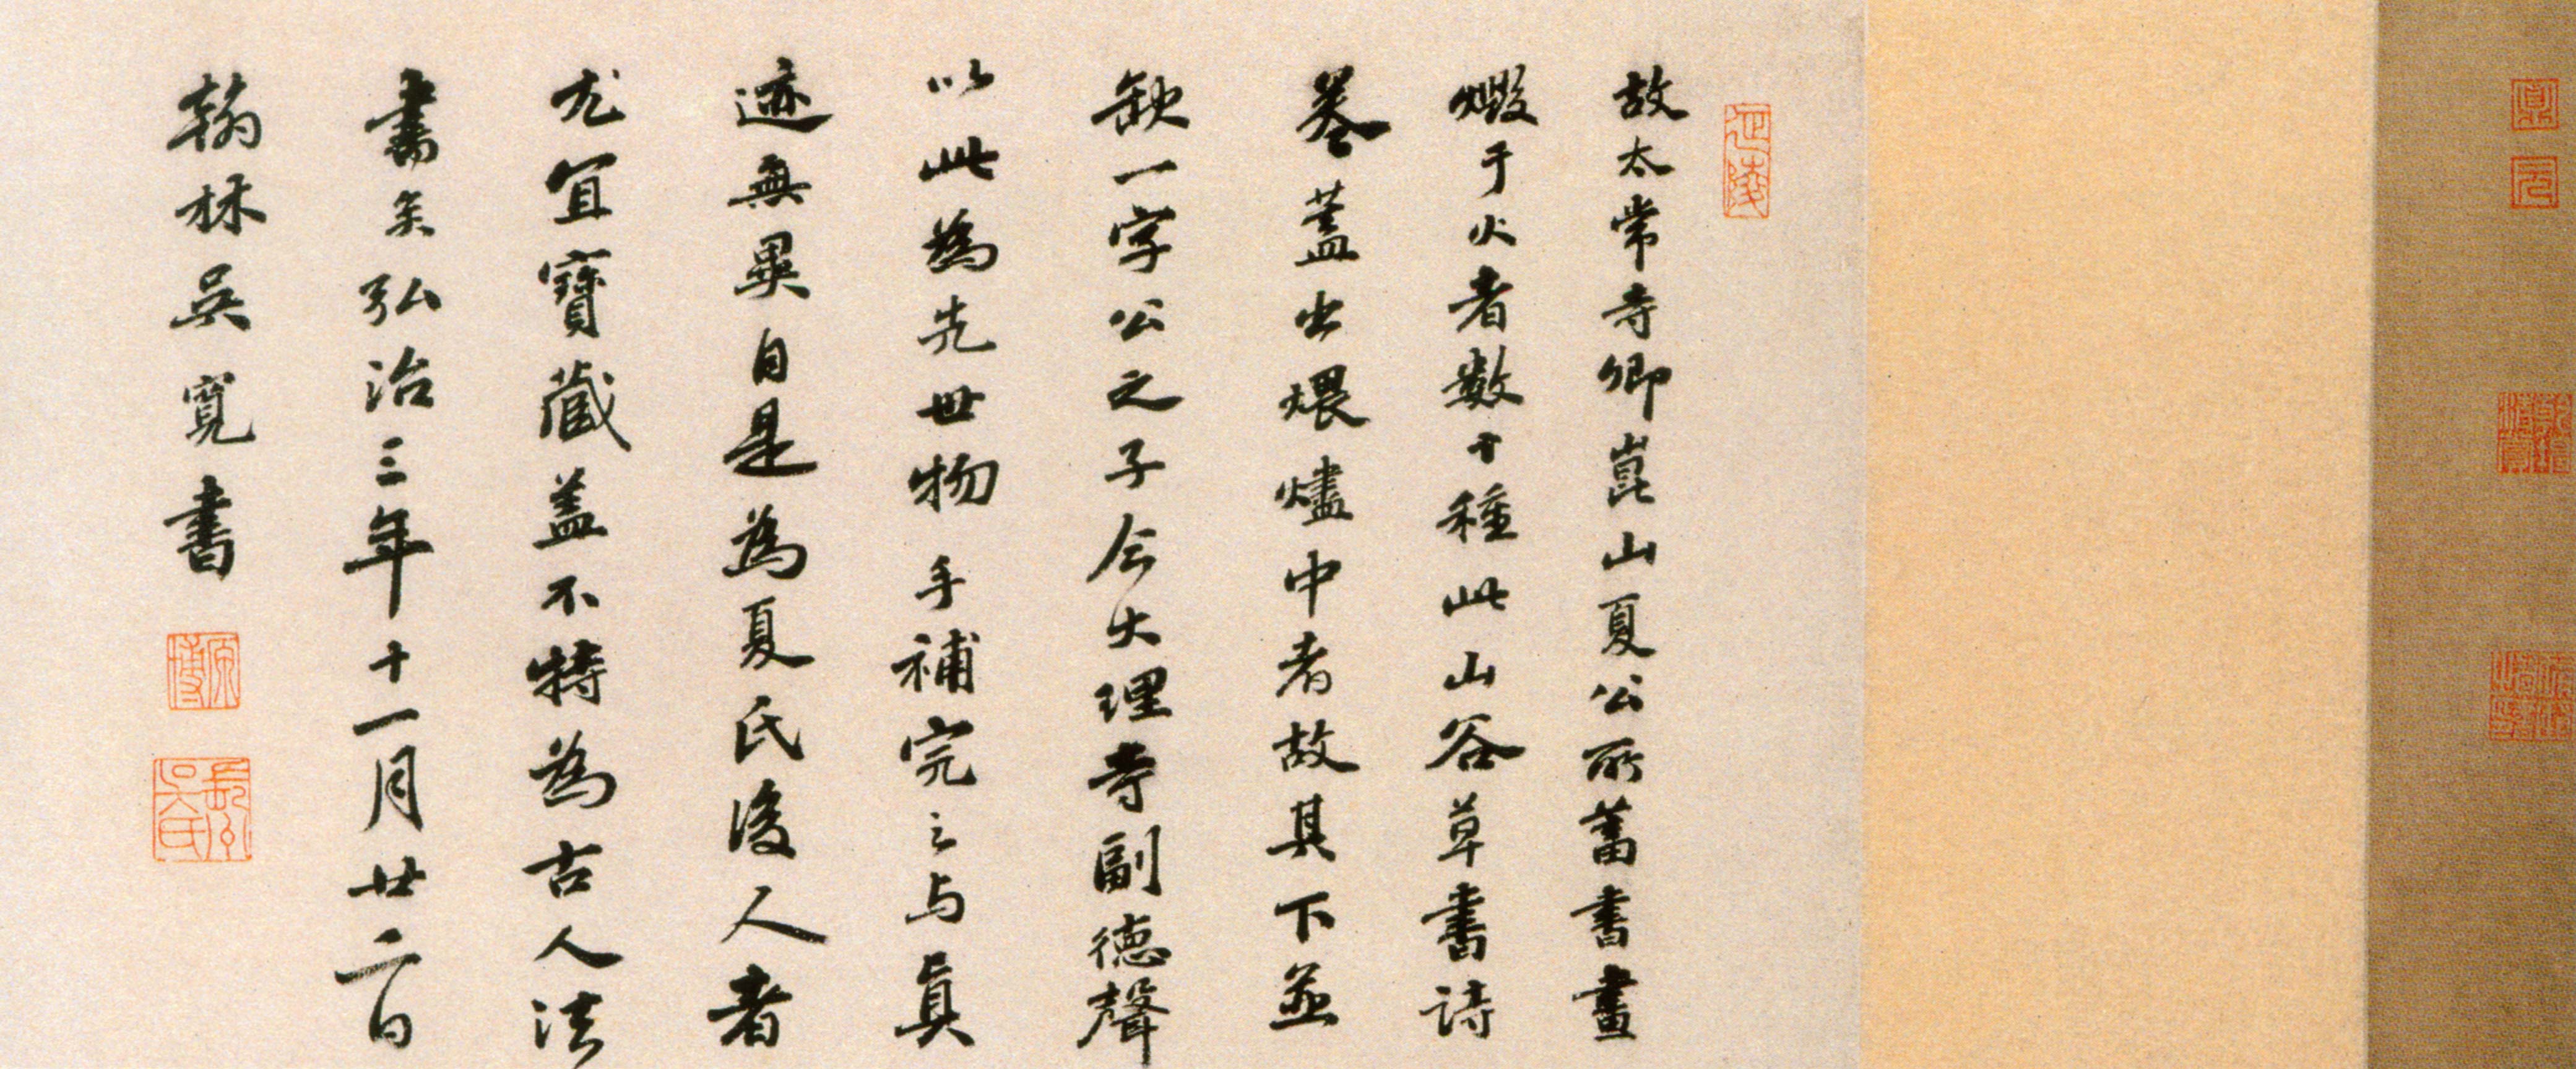 故太常寺卿崑山夏公所蓄書畫
燬于火者數十種此山谷草書詩
卷蓋出煨燼中者故其下並
缺一字公之子今大理寺副德聲
以此為先世物手補完之与真
迹無異自是為夏氏後人者
尤宜寶藏盖不特為古人法
書矣弘治三年十一月廿二日
翰林吳寬書
原博